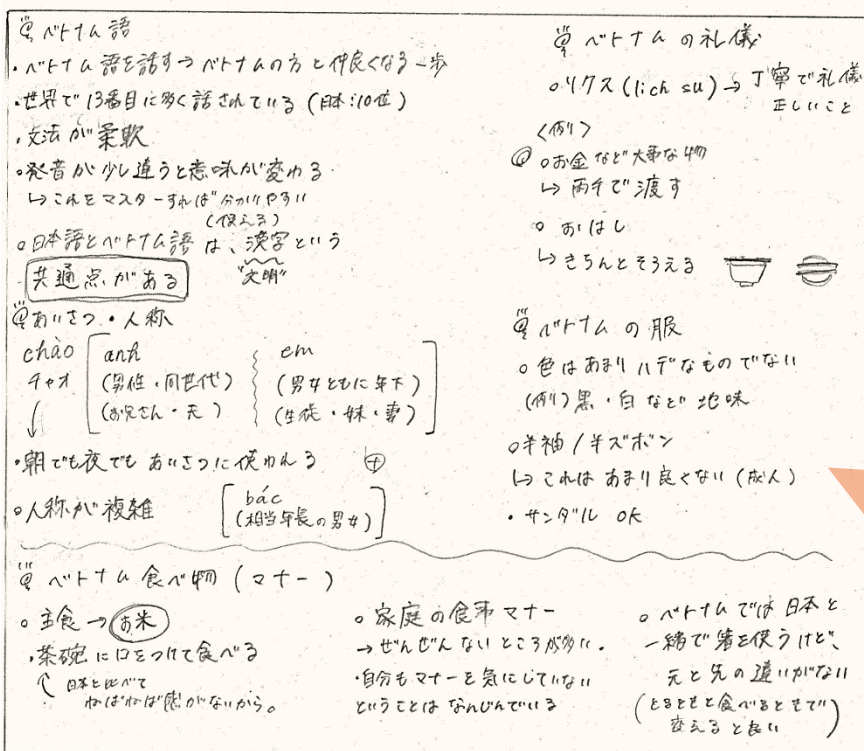 ベトナム語
・ベトナム語を話す→ベトナムの方と仲良くなる一歩
・世界で13番目に多く話されている(日本:10位)
・文法が柔軟
○発音が少し違うと意味が変わる
↳これをマスターすれば分かりやすい
(使える)
○日本語とベトナム語は、漢字という
共通点がある
"文明"
あいさつ・人称
chào
チャオ
anh
(男性・同世代)
(お兄さん・夫)
em
(男女ともに年下)
(生徒・妹・妻)
・朝でも夜でもあいさつに使われる
○人称が複雑
bác
(相当年長の男女)
ベトナムの礼儀
○リクス(lich su)→丁寧で礼儀
正しいこと
<例>
○お金など大事な物
↳両手で渡す
○おはし
↳きちんとそろえる
ベトナムの服
○色はあまりハデなものでない
(例)黒・白など地味
○半袖/半ズボン
↳これはあまり良くない(成人)
・サンダル OK
ベトナム食べ物(マナー)
○主食→お米
・茶碗に口をつけて食べる
日本と比べて
ねばねば感がないから。
○家庭の食事マナー
→ぜんぜんないところが多い.
・自分もマナーを気にしていない
ということはなんじんでいる
○ベトナムでは日本と
一緒で箸を使うけど、
元と先の違いがない
(とるときと食べるときで
変えると良い)